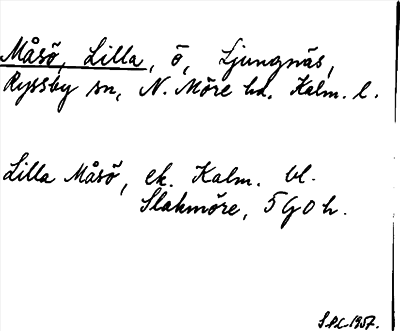 Måsö, Lilla, ö, Ljungnäs,
Ryssby sn, N. Möre hd. Kalm. l.
Lilla Måsö, ek. Kalm. bl.
Slakmöre, 5 G 0 h.
S.P.C. 1957.